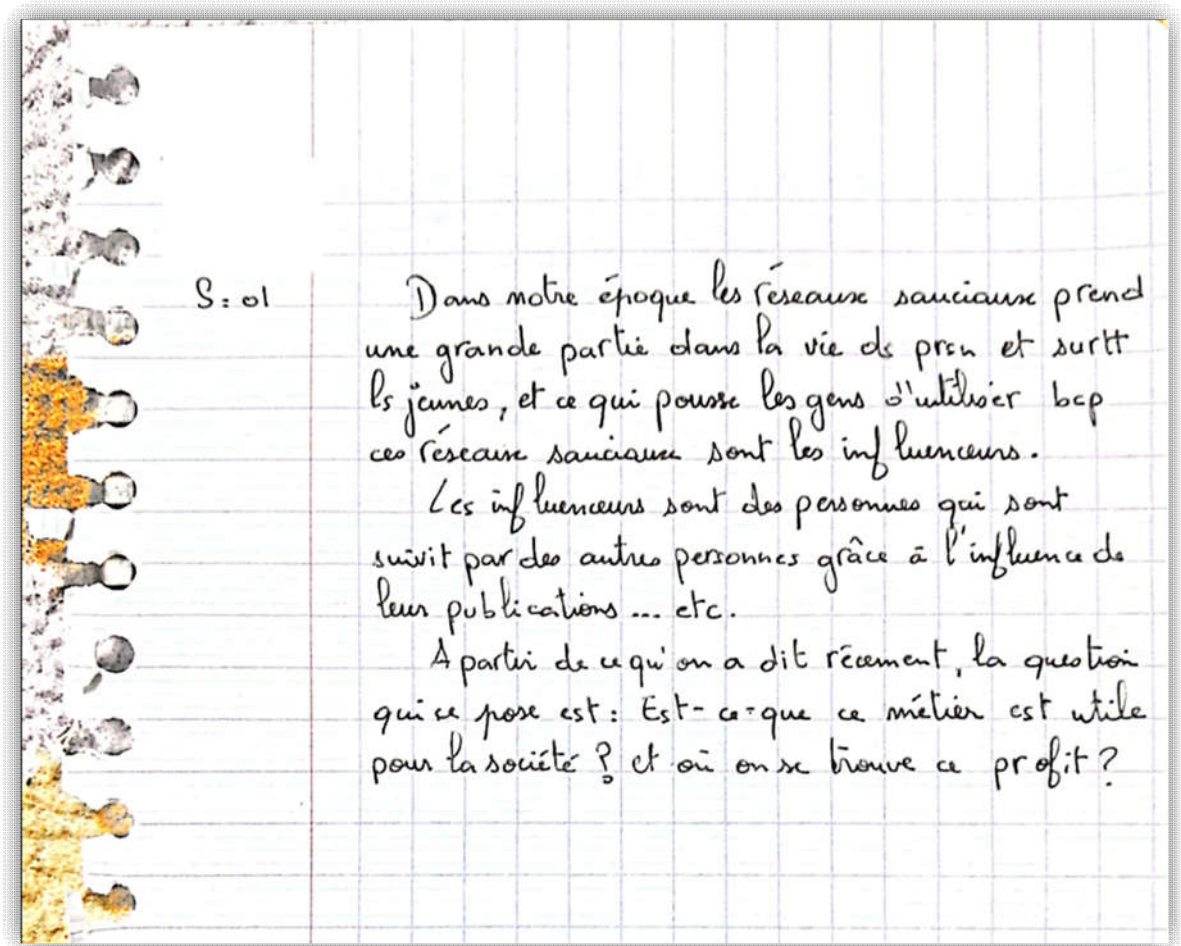 S: 01 Dans notre époque les réseaux sauciaux prend
une grande partie dans la vie ds prsn et surtt
ls jeunes, et ce qui pousse les gens d'utiliser bcp
ces réseaux sauciaux sont les influenceurs.
Les influenceurs sont des personnes qui sont
suivit par des autres personnes grâce à l'influence de
leur publications ... etc.
A partir de ce qu'on a dit récement, la question
qui se pose est : Est-ce-que ce métier est utile
pour la société ? et où on se trouve ce profit ?